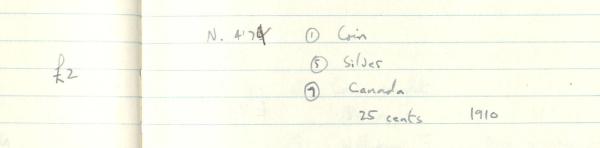 N. 474 ① Coin
£2 ⑤ Silver
⑨ Canada
25 cents 1910